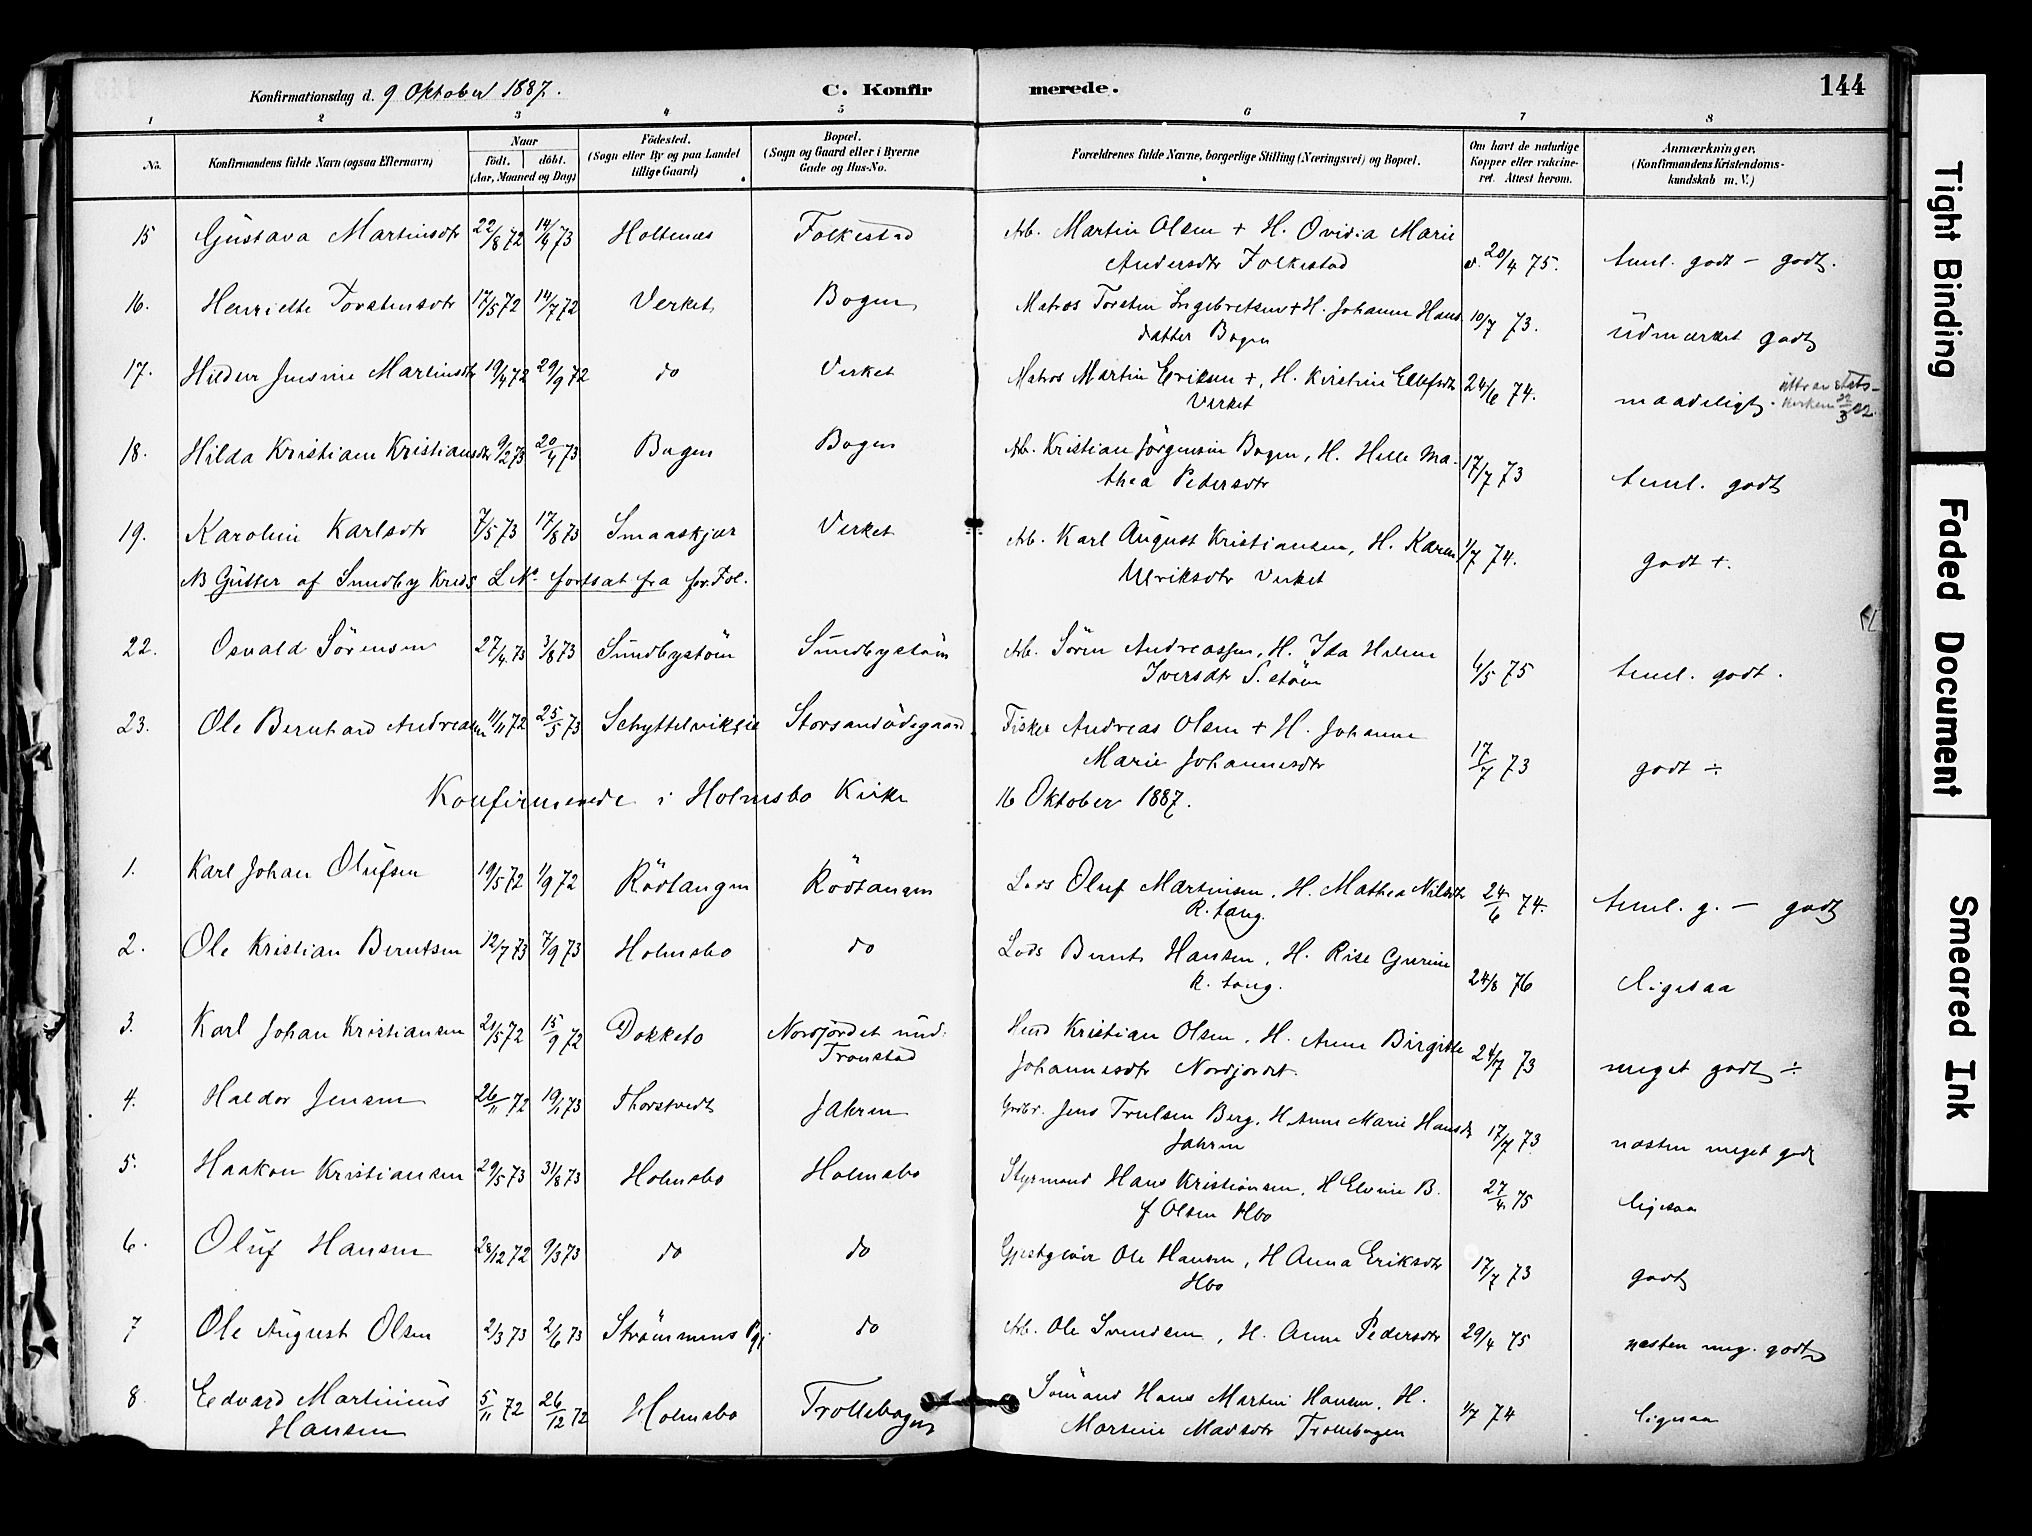 Konfirmationsdag d. 9 Oktober 1887. C. Konfirmerede. 144
1 2 3 4 5 6 7 8
No. Konfirmandens fulde Navn (ogsaa Efternavn) Naar født. døbt. (Aar, Maaned og Dag) Födested. (Sogn eller By og paa Landet tillige Gaard) Bopæl. (Sogn og Gaard eller i Byerne Gade og Hus-No. Forældrenes fulde Navne, borgerlige Stilling (Næringsvei) og Bopæl. Om havt de naturlige Kopper eller vakcineret. Attest herom. Anmærkninger. (Konfirmandens Kristendomskundskab m. V.)
15 Gustava Martinsdtr 22/8 72 14/4 73 Holtenæs Folkestad Arb. Martin Olsen + H. Ovidia Marie
Andersdtr Folkestad v. 20/4 75. teml. godt - godt.
16. Henriette Torstensdtr 17/5 72 14/7 72 Verket Bogen Matros Torsten Ingebretsen + H. Johanne Hans
datter Bogen 10/7 73. udmærket godt
17. Hildur Jensine Martinsdtr 19/4 72 29/9 72 do Verket Matros Martin Eriksen +, H. Kirstine Ellefsdtr
Verket 24/6 74. maadeligt. Stats-
kirken 22/3 22.
18. Hilda Kristiane Kristiansdtr 9/2 73 20/4 73 Bogen Bogen Arb. Kristian Jörgensen Bogen, H. Helle Ma-
thea Pedersdtr 17/7 73 teml. godt
19. Karoline Karlsdtr 7/5 73 17/8 73 Smaaskjær Verket Arb. Karl August Kristiansen, H. Karen
Ulriksdtr Verket 1/7 74. godt +.
NB Gutter af Sundby Kreds L. No fortsat fra for. Fol.
22. Osvald Sörensen 27/4 73 3/8 73 Sundbystöm Sundbystöm Arb. Sören Andreassen, H. Ida Helene
Iversdtr S. stöm 6/5 75 teml. godt.
23. Ole Bernhard Andreasen 11/11 72 25/5 73 Schyttelvikse Storsandödegaard Fisker Andreas Olsen + H. Johanne
Marie Johannesdtr 17/7 73 godt ÷
Konfirmerede i Holmsbo Kirke 16 Oktober 1887.
1. Karl Johan Olufsen 19/5 72 1/9 72 Rödtangen Rödtangen Lods Oluf Martinsen, H. Mathea Nilsdtr
R. tang. 24/6 74. teml. g. - godt
2. Ole Kristian Berntsen 12/7 73 7/9 73 Holmsbo do Lods Bernt Hansen, H. Rise Gurine
R. tang. 24/8 76 ligesaa
3. Karl Johan Kristiansen 21/5 72 15/9 72 Dokketo Nordjordet und.
Tronstad Kristian Olsen, H. Anne Birgitte
Johannesdtr Nordjordet. 24/7 73 meget godt ÷
4. Haldor Jensen 26/11 72 19/1 73 Thorstvedt Jahren Grdbr. Jens Trulsen Berg, H. Anne Marie Hansdtr
Jahren 17/7 73 næsten meget godt
5. Haakon Kristiansen 29/5 73 31/8 73 Holmsbo Holmsbo Styrmand Hans Kristiansen, H Elvine B.
f Olsen Hbo 27/4 75 ligesaa
6. Oluf Hansen 28/12 72 9/3 73 do do Gjestgiver Ole Hansen, H Anna Eriksdtr
Hbo 17/7 73 godt
7 Ole August Olsen 2/3 73 2/6 73 Strömmens Pgj do Arb. Ole Svendsen, H. Anne Pedersdtr 29/4 75 næsten meg. godt
8 Eedvard Martinius
Hansen 5/11 72 26/12 72 Holmsbo Trollebogen Sömand Hans Martin Hansen, H.
Martine Madsdtr Trollebogen 1/7 74 ligesaa
Tight Binding
Faded Document
Smeared Ink